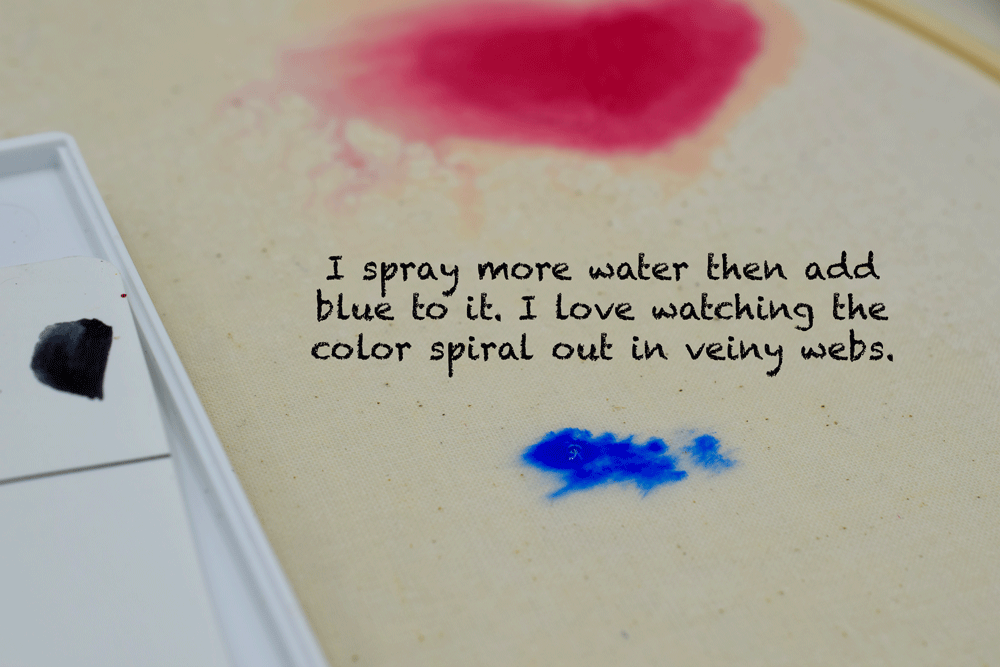 I spray more water then add
blue to it. I love watching the
color spiral out in veiny webs.